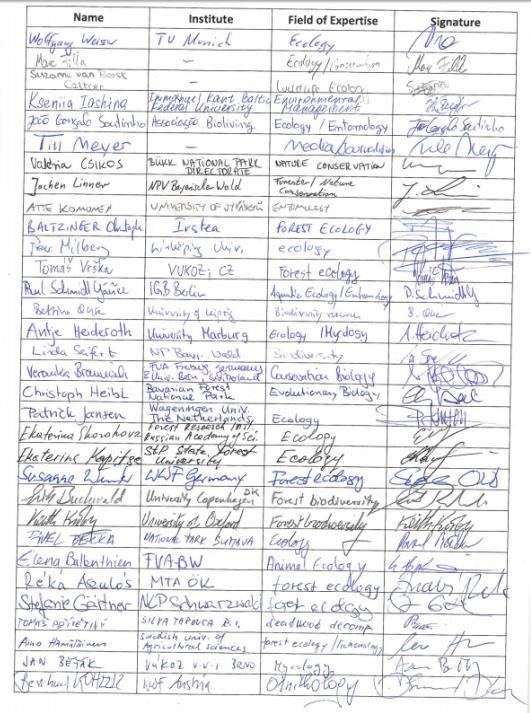 Name Institute Field of Expertise Signature
Wolfgang Weisser TU Munich Ecology
Marc Filla – Ecology/Conservation Marc Filla
Suzanne van Beeck Calkoen – Wildlife Ecology
Kseniia Iashina Immanuel Kant Baltic Federal University Environmental Management
João Gonçalo Soutinho Associação Bioliving Ecology / Entomology João Gonçalo Soutinho
Till Meyer – Media/
Valéria CSIKOS BÜKK NATIONAL PARK DIRECTORATE NATURE CONSERVATION
Jochen Linner NPV Bayerischer Wald Forester / Nature Conservation
ATTE KOMONEN UNIVERSITY OF JYVÄSKYLÄ ENTOMOLOGY
BALTZINGER Christophe Irstea FOREST ECOLOGY
Per Milberg Linköping Univ. ecology
Tomáš Vrška VUKOZ, CZ Forest ecology
Paul Schmidt Yáñez IGB Berlin Aquatic Ecology / Entomology P. Schmidt Y
Bettina University of Leipzig Biodiversity
Antje Heideroth University Marburg Ecology / Mycology A. Heideroth
Linda Seifert NP Bayr. Wald biodiversity
Veronika Braunisch FVA Freiburg & Univ. Bern Switzerland Conservation Biology
Christoph Heibl Bavarian Forest National Park Evolutionary Biology
Patrick Jansen Wageningen Univ. The Netherlands Ecology
Ekaterina Shorohova Forest Research Inst. Russian Academy of Sci. Ecology
Ekaterina Kapitsa StP State Forest University Ecology
Susanne Winter WWF Germany Forest ecology
Erik Buchwald University Copenhagen DK Forest biodiversity
Keith Kirby University of Oxford Forest biodiversity Keith Kirby
PAVEL BEČKA NATIONAL PARK ŠUMAVA Ecology Pavel Bečka
Elena Ballenthien FVA-BW Animal Ecology
Réka Aszalós MTA ÖK forest ecology
Stefanie Gärtner NLP Schwarzwald forest ecology
TOMÁŠ SILVA TAROUCA R.I. deadwood decomp.
Aino Hämäläinen Swedish univ. of Agricultural sciences forest ecology / entomology
JAN BĚŤÁK VÚKOZ v.v.i BRNO Mycology Jan Běťák
Bernhard KOHLER WWF Austria Ornithology